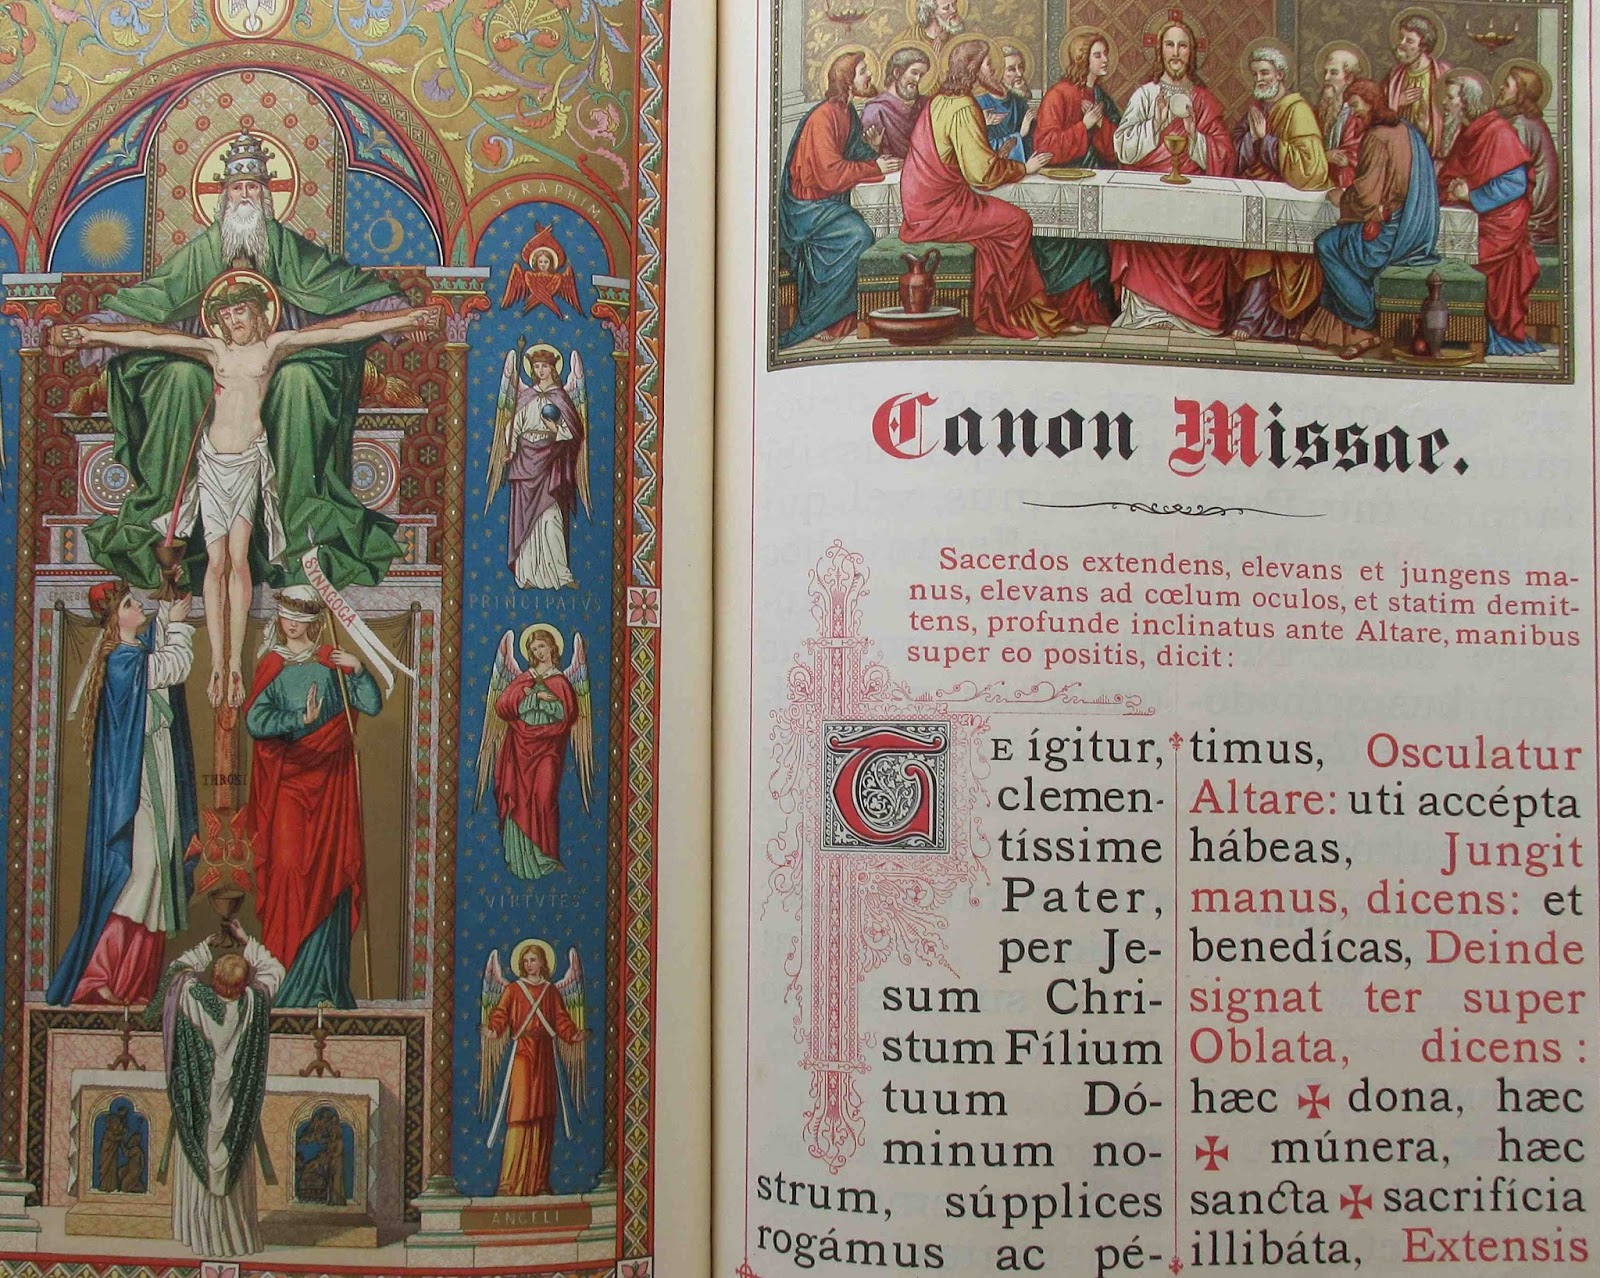 SERAPHIM
PRINCIPATVS
VIRTVTES
ANGELI
SINAGOGA
THRONI
Canon Missae.
Sacerdos extendens, elevans et jungens ma-
nus, elevans ad cœlum oculos, et statim demit-
tens, profunde inclinatus ante Altare, manibus
super eo positis, dicit:
TE ígitur,
clemen-
tíssime
Pater,
per Je-
sum Chri-
stum Fílium
tuum Dó-
minum no-
strum, súpplices
rogámus ac pé-
timus, Osculatur
Altare: uti accépta
hábeas, Jungit
manus, dicens: et
benedícas, Deinde
signat ter super
Oblata, dicens:
hæc ✠ dona, hæc
✠ múnera, hæc
sancta ✠ sacrifícia
illibáta, Extensis